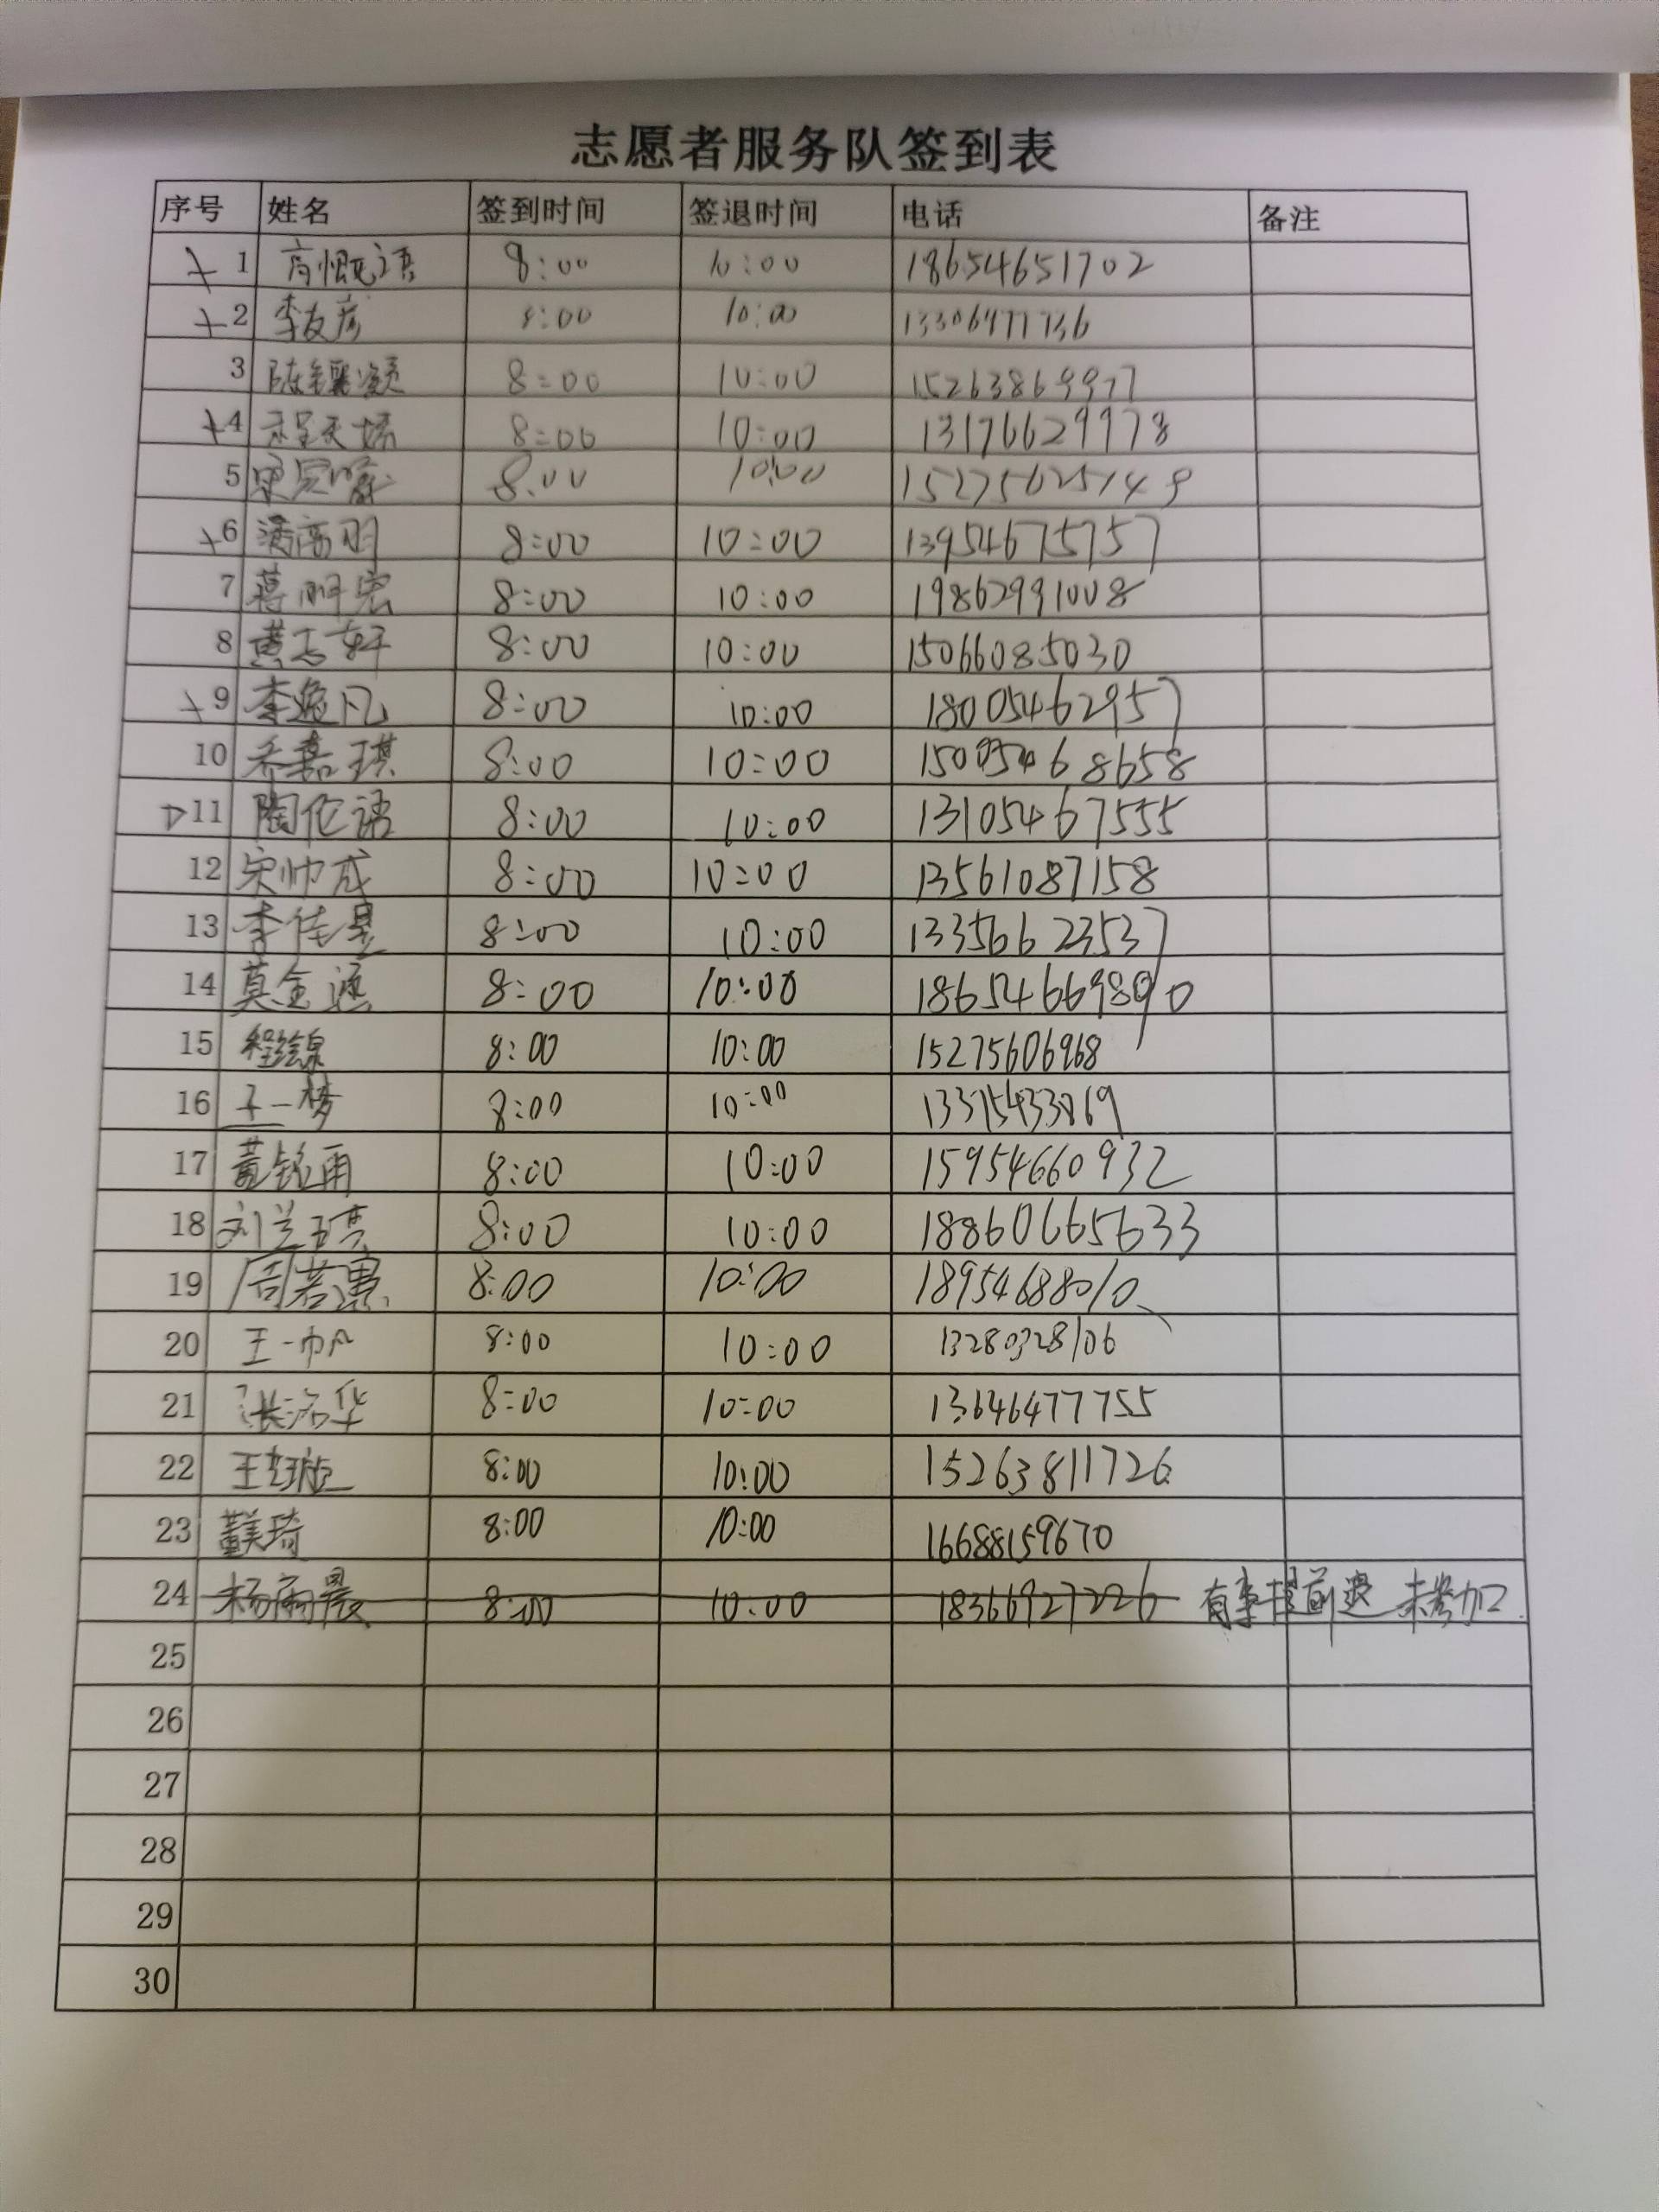 志愿者服务队签到表
序号 姓名 签到时间 签退时间 电话 备注
1 高愢语 8:00 10:00 18654651702
2 李友彦 8:00 10:00 13306477736
3 8:00 10:00 15263869977
4 8:00 10:00 13176629978
5 8:00 10:00 15275625749
6 满高明 8:00 10:00 13954675757
7 蒋明宏 8:00 10:00 19862991008
8 黄志轩 8:00 10:00 15066085030
9 李逸凡 8:00 10:00 18005462957
10 乔嘉琪 8:00 10:00 15005468658
11 陶伦语 8:00 10:00 13105467555
12 宋帅成 8:00 10:00 13561087158
13 李佳星 8:00 10:00 13356623537
14 莫金 8:00 10:00
15 8:00 10:00 15275606968
16 王一梦 8:00 10:00 13375433869
17 黄铭雨 8:00 10:00 15954660932
18 刘兰琪 8:00 10:00 18860665633
19 周若 8:00 10:00 18954688010
20 王一帆 8:00 10:00 13280328106
21 张洺华 8:00 10:00 13646477755
22 王 8:00 10:00 15263811726
23 董美琦 8:00 10:00 16688159670
24 杨雨晨 8:00 10:00 18366927226 有事提前退 未参加
25
26
27
28
29
30